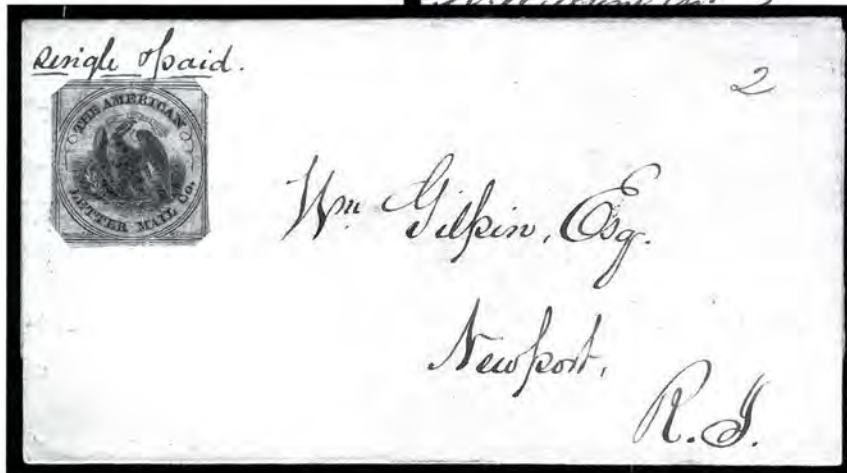 single paid.
2
THE AMERICAN
LETTER MAIL CO.
Wm. Gilpin, Esq.
Newport,
R.I.